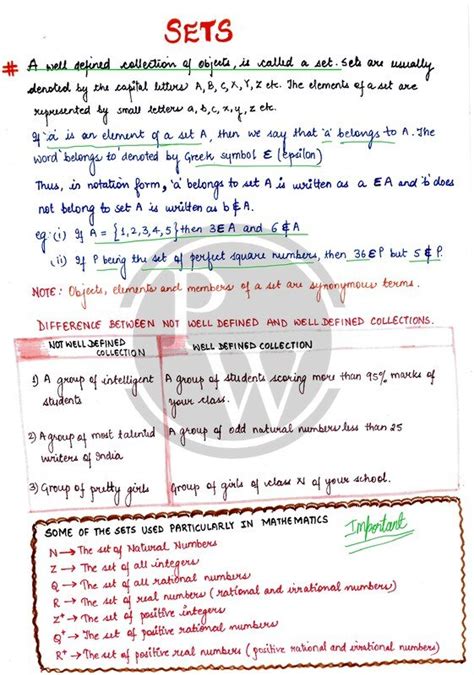 SETS
# A well defined collection of objects, is called a set. Sets are usually
denoted by the capital letters A, B, C, X, Y, Z etc. The elements of a set are
represented by small letters a, b, c, x, y, z etc.
If 'a' is an element of a set A, then we say that 'a' belongs to A. The
word 'belongs to' denoted by Greek symbol ∈ (epsilon)
Thus, in notation form, 'a' belongs to set A is written as a ∈ A and 'b' does
not belong to set A is written as b ∉ A.
eg: (i) If A = {1,2,3,4,5} then 3 ∈ A and 6 ∉ A
(ii) If P being the set of perfect square numbers, then 36 ∈ P but 5 ∉ P.
NOTE: Objects, elements and members of a set are synonymous terms.
DIFFERENCE BETWEEN NOT WELL DEFINED AND WELL DEFINED COLLECTIONS.
NOT WELL DEFINED
COLLECTION
WELL DEFINED COLLECTION
1) A group of intelligent
students
A group of students scoring more than 95% marks of
your class.
2) A group of most talented
writers of India
A group of odd natural numbers less than 25
3) Group of pretty girls
Group of girls of class XI of your school.
SOME OF THE SETS USED PARTICULARLY IN MATHEMATICS
Important
N → The set of Natural Numbers
Z → The set of all integers
Q → The set of all rational numbers
R → The set of real numbers (rational and irrational numbers)
Z⁺ → The set of positive integers
Q⁺ → The set of positive rational numbers
R⁺ → The set of positive real numbers (positive rational and irrational numbers)
PW